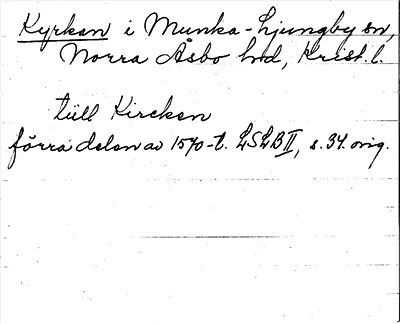 Kyrkan i Munka-Ljungby sn,
Norra Åsbo hd, Krist. l.
tüll Kircken
förra delen av 1570-t. LSLB II, s. 34. orig.